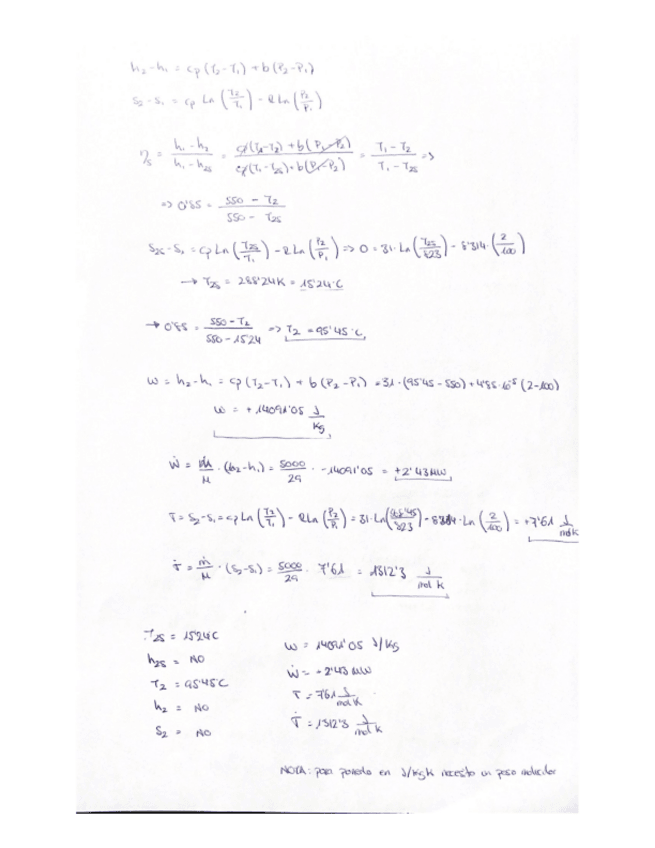 h₂-h₁ = cp(T₂-T₁) + b(P₂-P₁)
S₂-S₁ = cp Ln(T₂/T₁) - R Ln(P₂/P₁)
ηs = (h₁-h₂)/(h₁-h₂s) = (cp(T₁-T₂)+b(P₁-P₂))/(cp(T₁-T₂s)+b(P₁-P₂)) = (T₁-T₂)/(T₁-T₂s) =>
=> 0'85 = (550 - T₂)/(550 - T₂s)
S₂s-S₁ = cp Ln(T₂s/T₁) - R Ln(P₂/P₁) => 0 = 31·Ln(T₂s/823) - 8'314·(2/100)
→ T₂s = 288'24K = 15'24·C
→ 0'85 = (550-T₂)/(550-15'24) => T₂ = 95'45·C
W = h₂-h₁ = cp(T₂-T₁) + b(P₂-P₁) = 31·(95'45-550) + 4'85·10⁻⁵(2-100)
W = +14091'05 J/Kg
Ẇ = ṁ/M·(h₂-h₁) = 5000/29 · -14091'05 = +2'43MW
T = S₂-S₁ = cp Ln(T₂/T₁) - R Ln(P₂/P₁) = 31·Ln(/823) - ·Ln(2/100) = +7'61 J/molK
Ṫ = ṁ/M·(S₂-S₁) = 5000/29 · 7'61 = 1312'3 J/mol K
T₂s = 15'24C
h₂s = NO
T₂ = 95'45·C
h₂ = NO
S₂ = NO
W = 14091'05 J/Kg
Ẇ = -2'43 MW
T = 7'61 J/mol K
Ṫ = 1312'3 J/mol K
NOTA: para ponerlo en J/kgK necesito un peso molecular